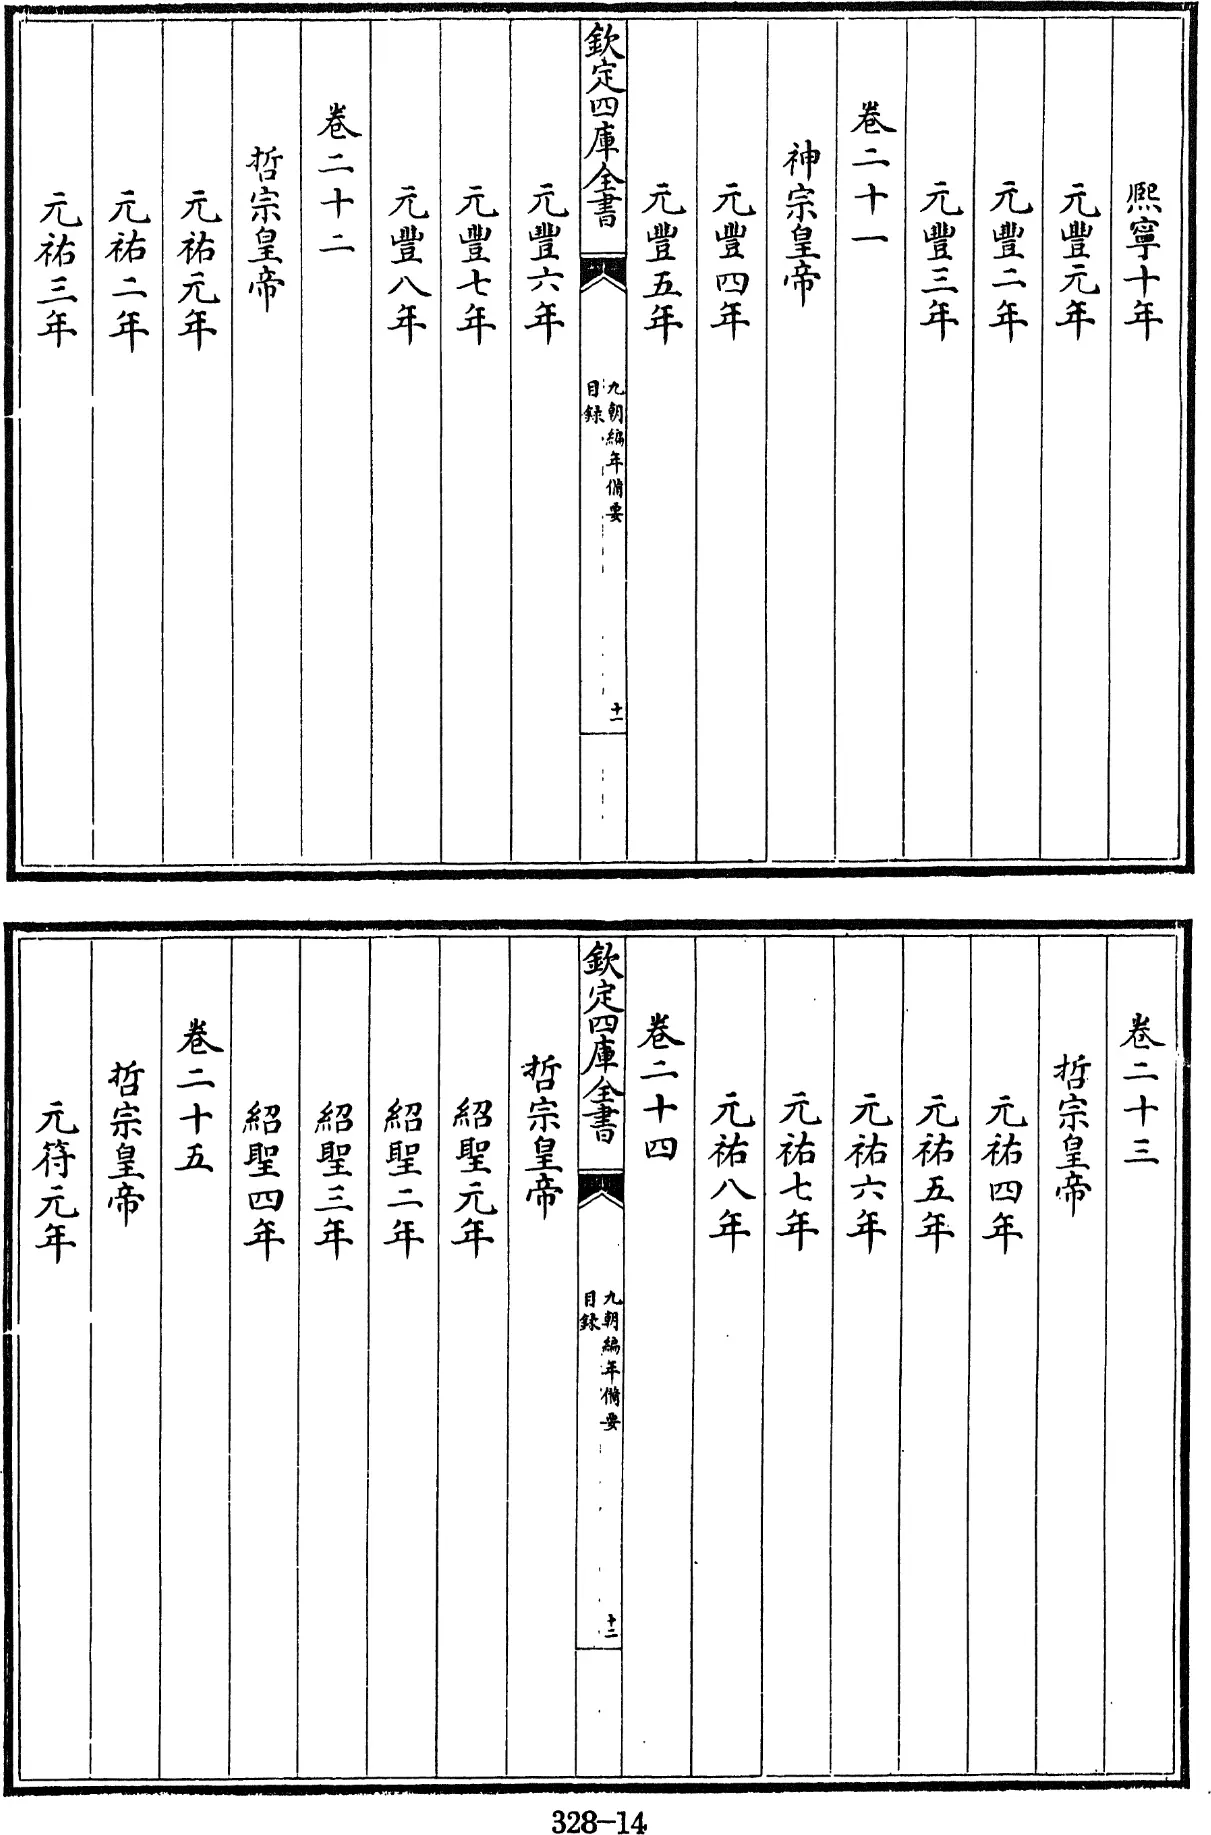 熈寧十年
元豐元年
元豐二年
元豐三年
卷二十一
神宗皇帝
元豐四年
元豐五年
欽定四庫全書
九朝編年備要
目録
十一
元豐六年
元豐七年
元豐八年
卷二十二
哲宗皇帝
元祐元年
元祐二年
元祐三年
卷二十三
哲宗皇帝
元祐四年
元祐五年
元祐六年
元祐七年
元祐八年
卷二十四
欽定四庫全書
九朝編年備要
目録
十二
哲宗皇帝
紹聖元年
紹聖二年
紹聖三年
紹聖四年
卷二十五
哲宗皇帝
元符元年
328-14